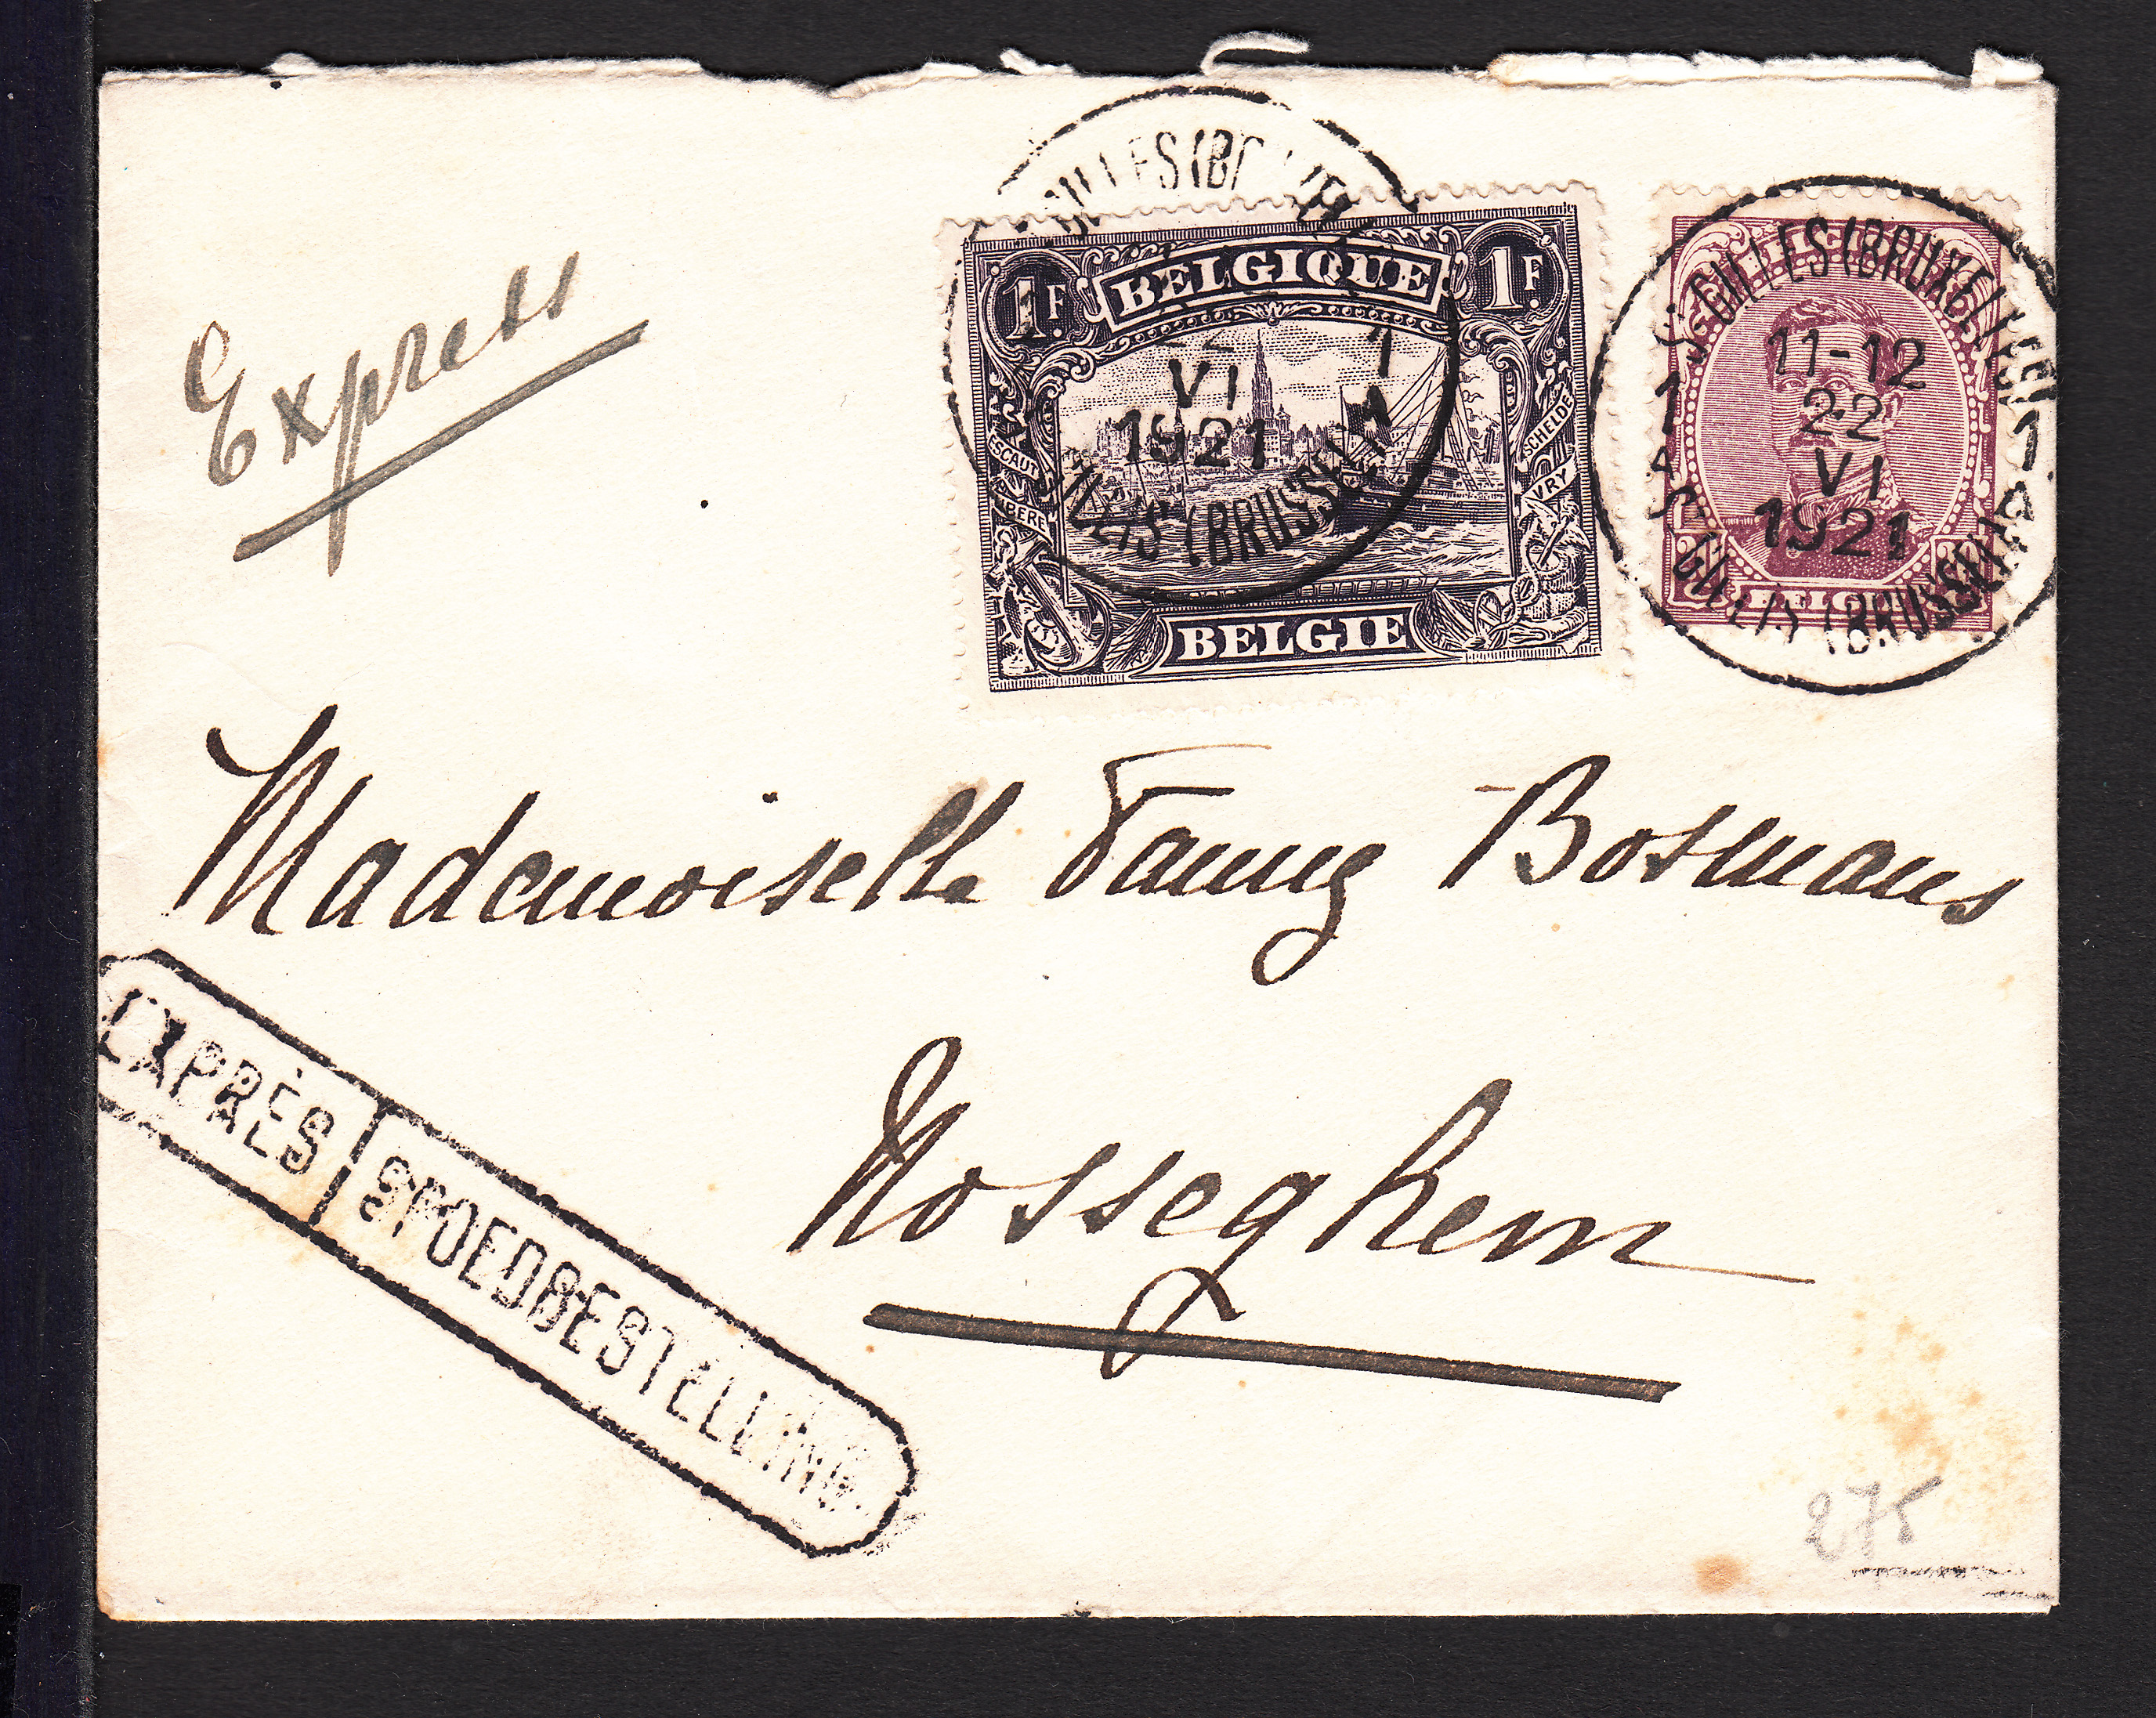 Express
1F BELGIQUE 1F
ESCAUT LIBERE
SCHELDE VRY
BELGIE
VI
1921
1
(BRUSSEL)
ST GILLES (BRUXELLES)
11-12
22
VI
1921
1 1
A A
ST GILLIS (BRUSSEL)
Mademoiselle Fanny Bosmans
Nosseghem
EXPRÈS SPOEDBESTELLING
275